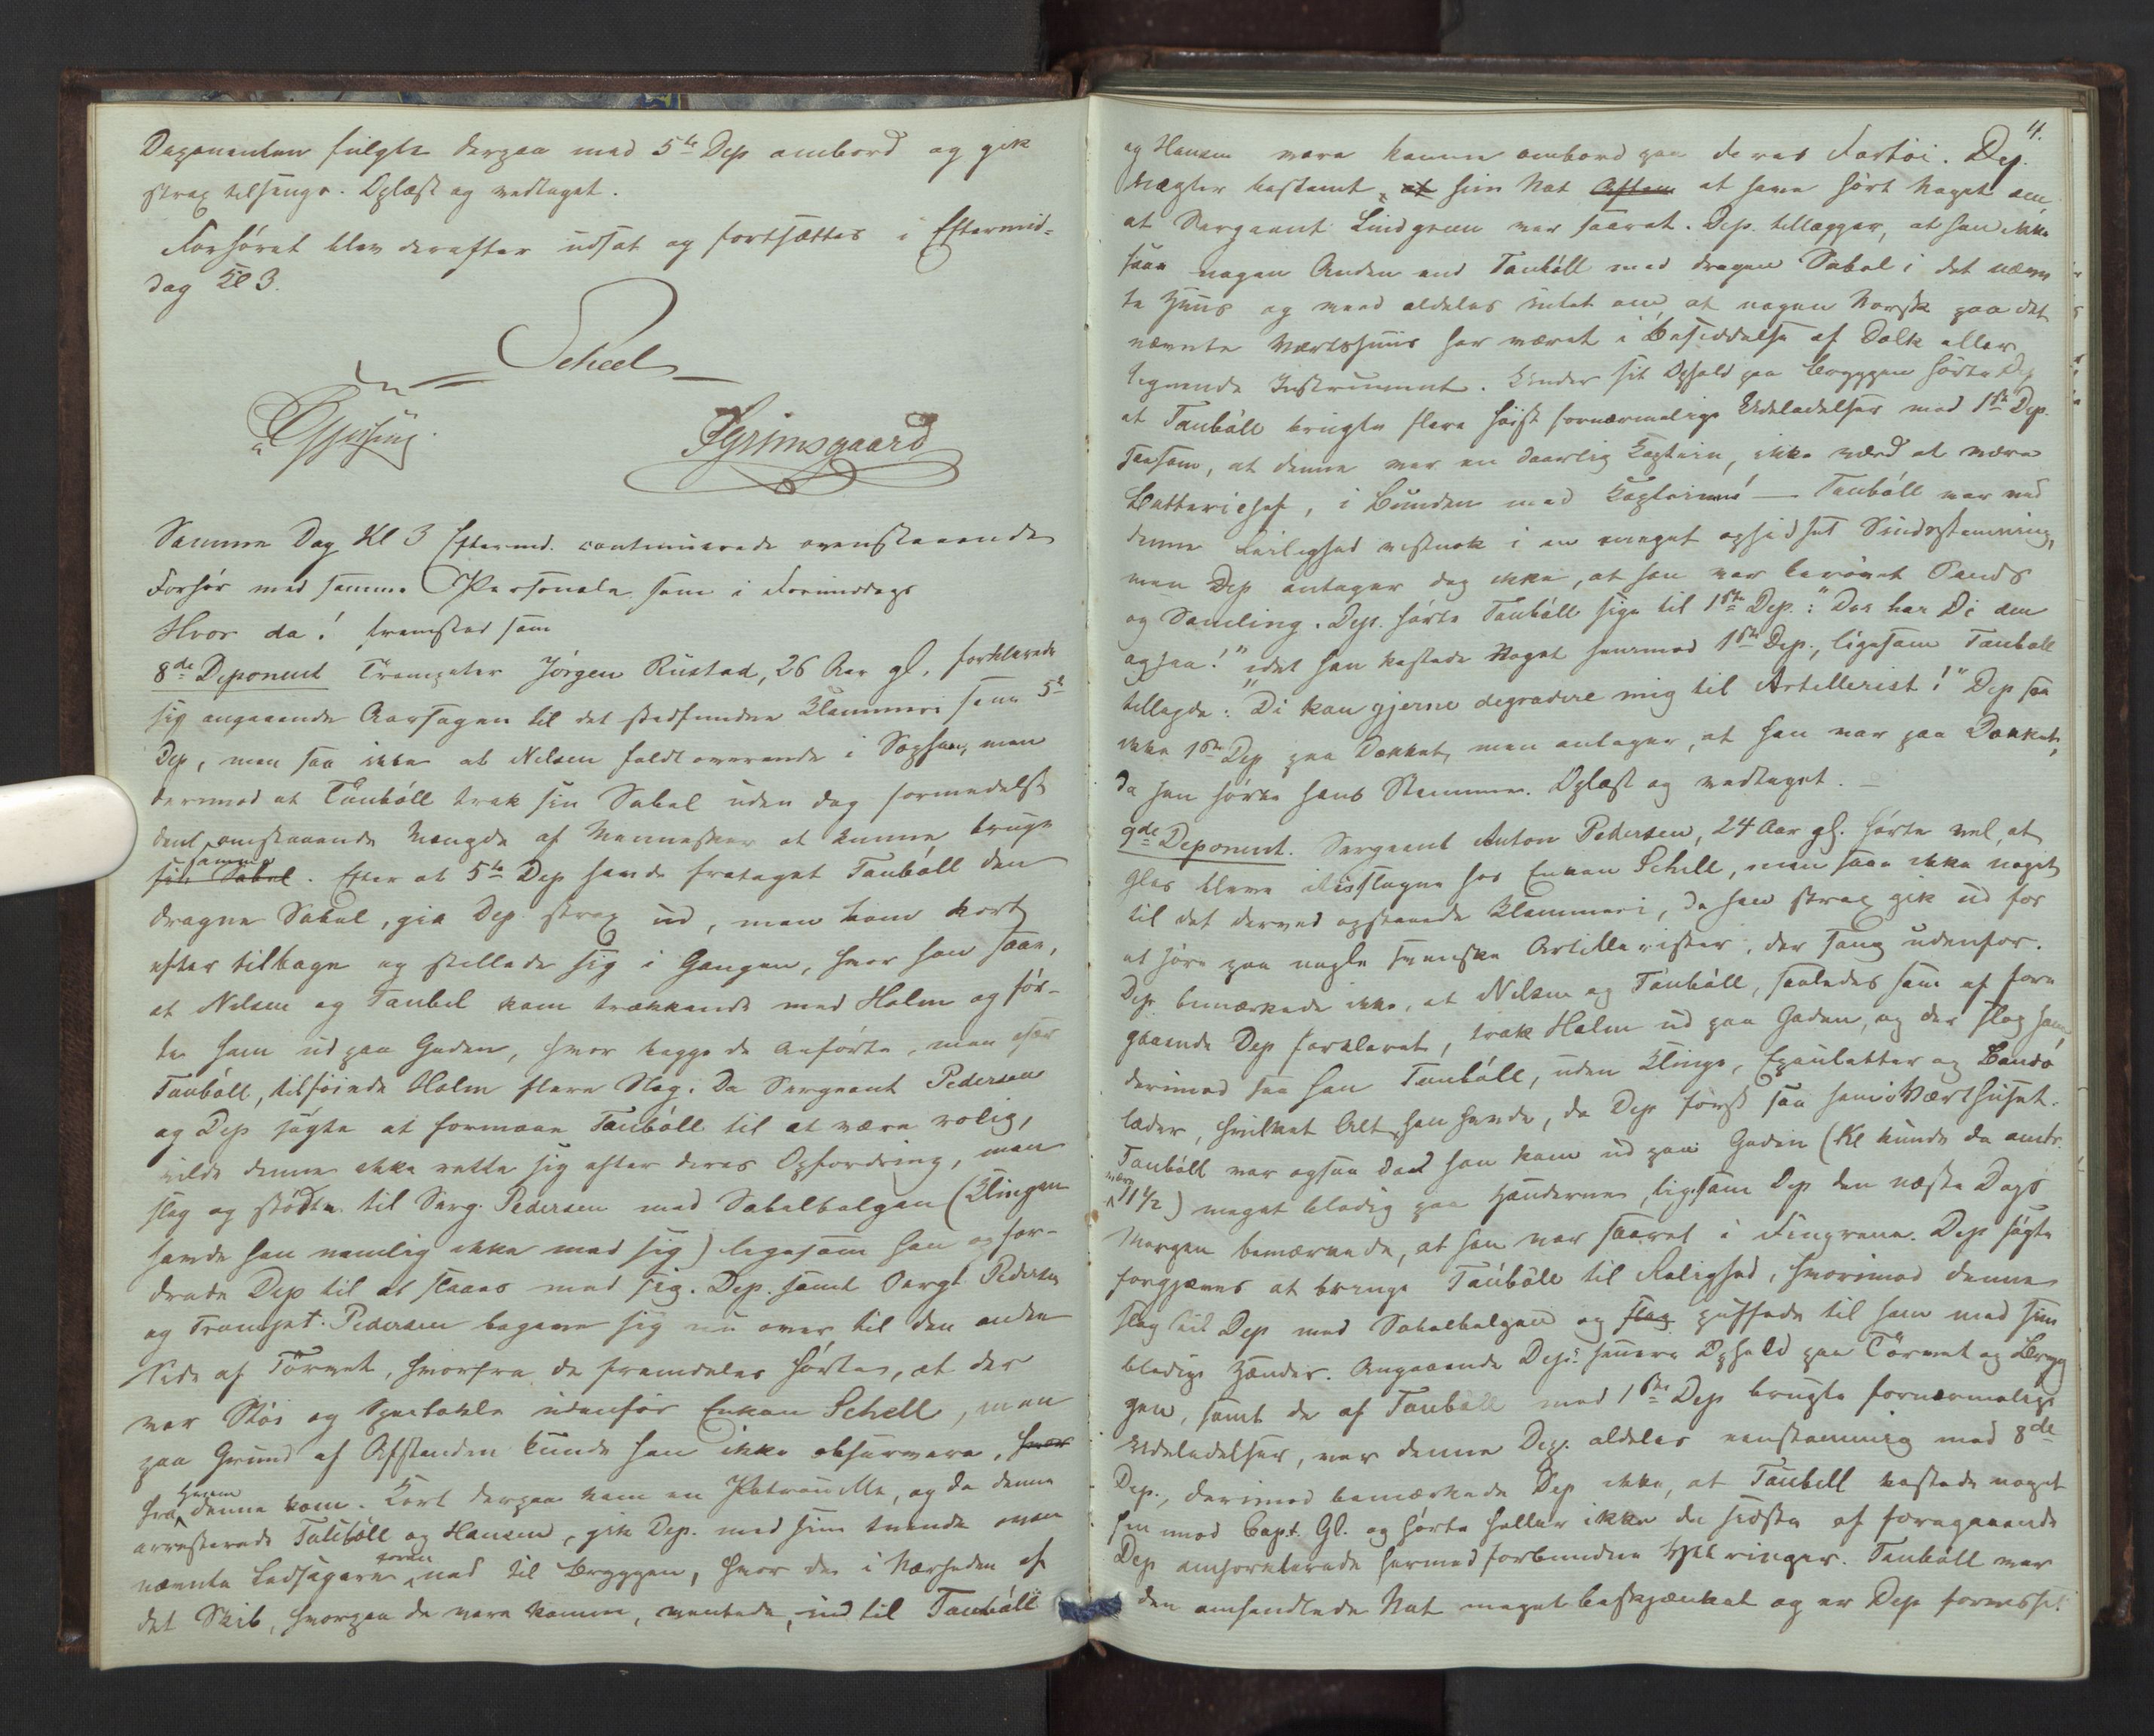 Deponenten fulgte derpaa med 5te Dep ombord og gik
strax tilsengs. Oplæst og vedtaget.
Forhøret blev derefter udsat og fortsættes i Eftermid-
dag Kl 3.
Scheel
Fgrimsgaard
Samme Dag Kl 3 Eftermd. continuerede ovenstaaende
Forhør med samme Personale som i Formiddags
Hvor da! fremstod som
8de Deponent Trompeter Jörgen Rustad, 26 Aar gl. forklarede
sig angaaende Aarsagen til det stedfundne Klammeri som 5te
Dep, men saa ikke at Nilsen faldt overende i Sophaen, men
derimod at Tanbóll trak sin Sabel uden dog formedelst
den omstaaende Mængde af Mennesker at kunne bruge
samme
sin Sabel. Efter at 5te Dep havde frataget Tanbóll den
dragne Sabel, gik Dep strax ud, men kom kort
efter tilbage og stillede sig i Gangen, hvor han saae,
at Nilsen og Tanbel kom trækkende med Holm og för-
te ham ud paa Gaden, hvor begge de anførte, men især
Tanbóll, tilføiede Holm flere Slag. Da Sergeant Pedersen
og Dep søgte at formaae Tanbóll til at være rolig,
vilde denne ikke rette sig efter deres Opfordring, men
slog og stødte til Serg. Pedersen med Sabelbalgen (Klingen
havde han nemlig ikke med sig) ligesom han opfor-
drede Dep til at slaaes med sig. Dep. samt Sergt. Pedersen
og Trompet. Pedersen begave sig nu over til den anden
Side af Törvet, hvorfra de fremdeles hørte, at der
var Støi og Spectakle udenfor Enken Schell, men
paa Grund af Afstanden kunde han ikke observere, hvor
hvem
fra denne kom. Kort derpaa kom en Patrouille, og da denne
arresterede Tanbóll og Hansen, gik Dep. med sine tvende oven
nævnte Ledsagere ned til Bryggen, hvor de i Nærheden af
det Skib, hvorpaa de vare komne, ventede, indtil Tanbóll
4.
og Hansen vare komne ombord paa deres Fartöi. Dep.
nægter bestemt, at hin Nat Aften at have hört Noget om,
at Sergeant Lindgreen var saaret. Dep. tillægger, at han ikke
saae nogen Anden end Tanbóll med dragen Sabel i det nævn
te Huus og veed aldeles intet om, at nogen Norsk paa det
nævnte Værtshuus har været i Besiddelse af Dolk eller
lignende Instrument. Under sit Ophold paa Bryggen hørte Dep
at Tanbóll brugte flere høist fornærmelige Udeladelser mod 1ste Dep.
saasom, at denne var en daarlig Captain, ikke værd at være
Batteriechef, i Bunden med Kaptainen! — Tanbóll var ved
denne Leilighed vistnok i en meget ophidset Sindsstemning,
men Dep antager dog ikke, at han var berövet Sands
og Samling. Dep. hørte Tanbóll sige til 1ste Dep.: "Der har Di den
ogsaa!" idet han kastede Noget henimod 1ste Dep., ligesom Tanbóll
tillagde: "Di kan gjerne degradere mig til Artillerist!" Dep saa
ikke 1ste Dep paa Dækket, men antager, at han var paa Dækket,
da han hørte hans Stemme. Oplæst og vedtaget. —
9de Deponent. Sergeant Anton Pedersen, 24 Aar gl. hørte vel, at
Glas bleve itusslagne hos Enken Schell, men saae ikke noget
til det derved opstaaede Klammeri, da han strax gik ud for
at høre paa nogle svenske Artillerister, der sang udenfor.
Dep bemærkede ikke, at Nilsen og Tanbóll, saaledes som af fore
gaaende Dep forklaret, trak Holm ud paa Gaden, og der slog ham,
derimod saa han Tanbóll, uden Klinge, Epauletter og Bando
læder, hvilket Alt han havde, da Dep først saa ham i Værtshuset.
Tanbóll var ogsaa da han kom ud paa Gaden (Kl kunde da omtr.
være
11½) meget blodig paa Hænderne, ligesom Dep den næste Dags
Morgen bemærkede, at han var skaaret i Fingrene. Dep søgte
forgjæves at bringe Tanbóll til Rolighed, hvorimod denne
slog til Dep med Sabelbalgen og slog puffede til ham med sine
blodige Hænder. Angaaende Dep: senere Ophold paa Törvet og Bryg
gen, samt de af Tanbóll mod 1ste Dep brugte fornærmelige
Udeladelser, var denne Dep. aldeles eenstemmig med 8de
Dep., derimod bemærkede Dep ikke, at Tanbell kastede noget
hen mod Capt. Gl. og hørte heller ikke de sidste af foregaaende
Dep omforklarede hermed forbundne Yttringer. Tanbóll var
den omhandlede Nat meget beskjænket og er Dep forvisset